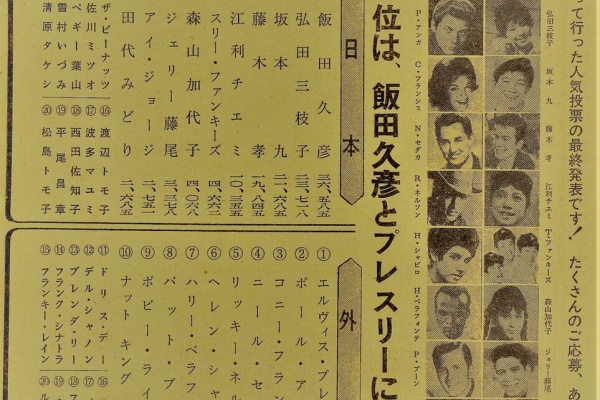 って行った人気投票の最終発表です! たくさんのご応募、あ
弘田三枝子
坂本九
藤木孝
江利チエミ
T・ファンキーズ
森山加代子
ジェリー藤尾
P・アンカ
C・フランシス
N・セダカ
R・ネルソン
H・シャピロ
H・ベラフォンテ
P・ブーン
位は、飯田久彦とプレスリーに
日本
飯田久彦 三六、五八五
弘田三枝子 二三、七二八
坂本九 二一、六八五
藤木孝 一九、八四五
江利チエミ 一〇、三五五
スリー・ファンキーズ 四、六六二
森山加代子 四、〇六八
ジェリー藤尾 三、三七八
アイ・ジョージ 二、七五一
田代みどり 二、六八五
ザ・ピーナッツ ⑯ 渡辺トモ子
佐川ミツオ ⑰ 波多マユミ
ペギー葉山 ⑱ 西田佐知子
雪村いづみ ⑲ 平尾昌章
清原タケシ ⑳ 松島トモ子
外
① エルヴィス・プレ
② ポール・ア
③ コニー・フラン
④ ニール・セ
⑤ リッキー・ネル
⑥ ヘレン・シャ
⑦ ハリー・ベラフ
⑧ パット・ブ
⑨ ボビー・ライ
⑩ ナットキング
⑪ ドリス・デー ⑯
⑫ デル・シャノン ⑰
⑬ ブレンダ・リー ⑱
⑭ フランク・シナトラ ⑲
⑮ フランキー・レイン ⑳